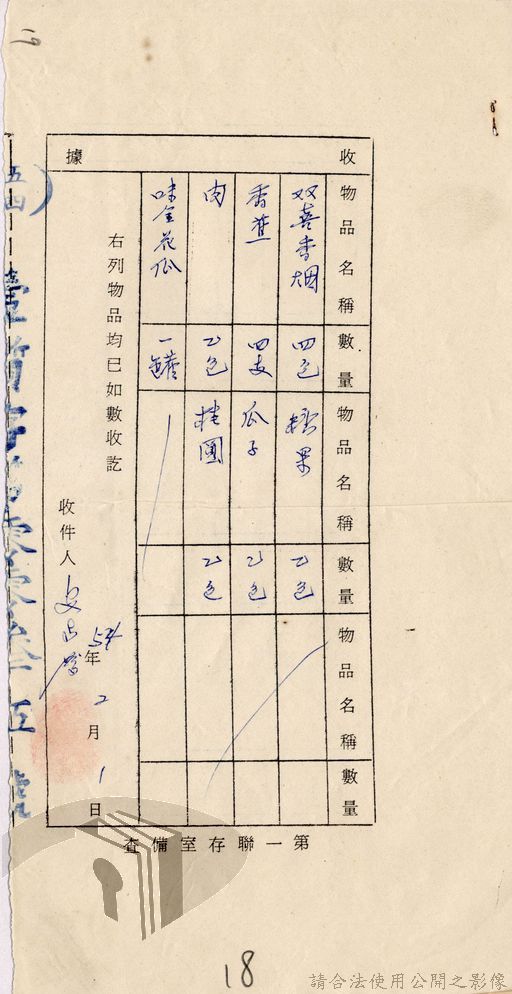 收據
物品名稱 數量 物品名稱 數量 物品名稱 數量
双喜香烟 四包 糖果 乙包
香蕉 四支 瓜子 乙包
肉 乙包 桂圓 乙包
味全花瓜 一罐
右列物品均已如數收訖
收件人
54年2月1日
第一聯存室備查
五四)
18
請合法使用公開之影像